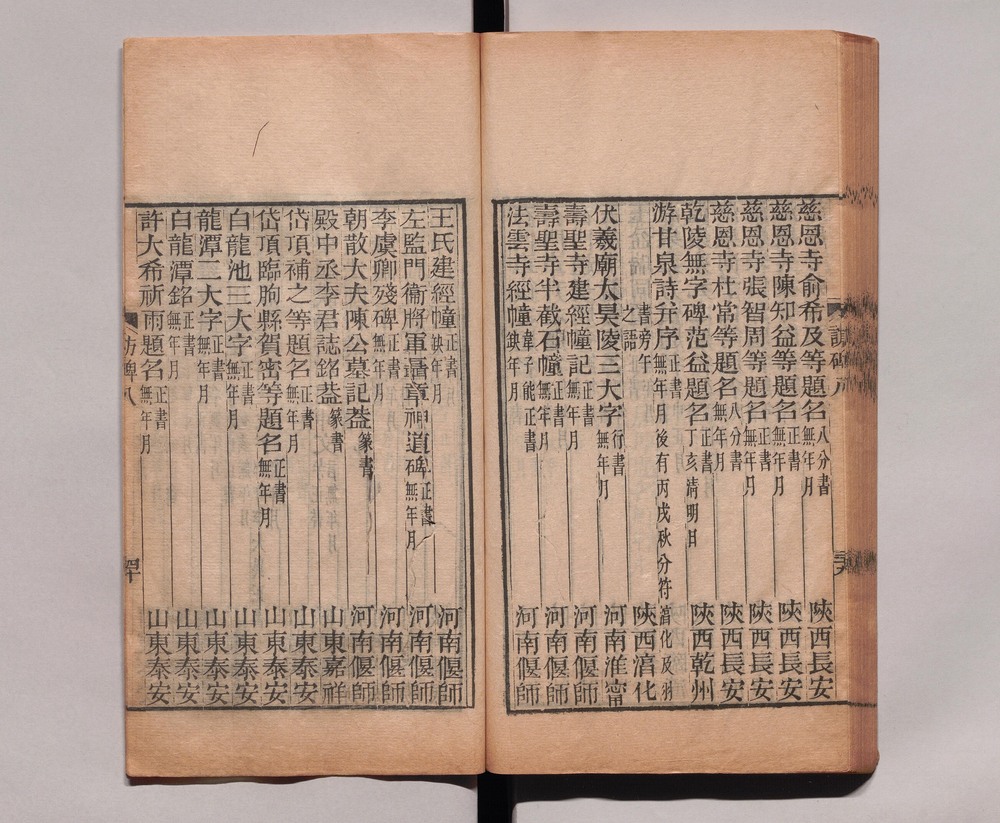 慈恩寺俞希及等題名 八分書 無年月 陝西長安
慈恩寺陳知益等題名 正書 無年月 陝西長安
慈恩寺張智周等題名 正書 無年月 陝西長安
慈恩寺杜常等題名 八分書 無年月 陝西長安
乾陵無字碑范益題名 正書 丁亥清明日 陝西乾州
游甘泉詩并序 正書 無年月後有丙戌秋分符 陝西淳化
書旁午之語
伏羲廟太昊陵三大字 行書 無年月 河南淮甯
壽聖寺建經幢記 正書 無年月 河南偃師
壽聖寺半截石幢 正書 無年月 河南偃師
法雲寺經幢 韋子能正書 缺年月 河南偃師
訪碑八
王氏建經幢 正書 缺年月 河南偃師
左監門衞將軍聶章神道碑 正書 無年月 河南偃師
李虞卿殘碑 正書 無年月 河南偃師
朝散大夫陳公墓記葢 篆書 河南偃師
殿中丞李君誌銘葢 篆書 山東嘉祥
岱頂補之等題名 正書 無年月 山東泰安
岱頂臨朐縣賀密等題名 正書 無年月 山東泰安
白龍池三大字 正書 無年月 山東泰安
龍潭二大字 正書 無年月 山東泰安
白龍潭銘 正書 無年月 山東泰安
許大希祈雨題名 正書 無年月 山東泰安
訪碑八